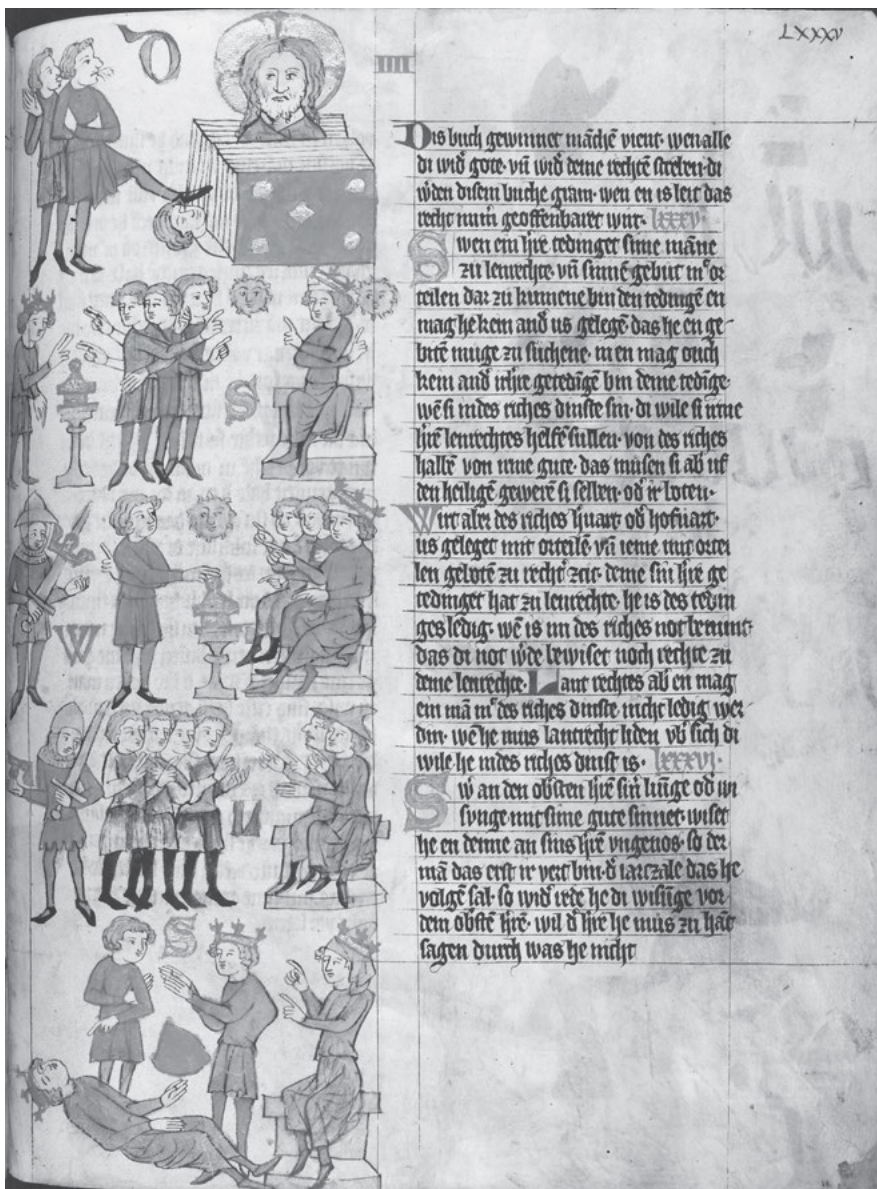 LXXXV
D
IIII
Dis buch gewinnet māchē vient· wen alle
di wid̕ gote· vn̄ wid̕ deme rechtē streben· di
w̕den disem buche gram· wen en is leit das
recht num̄ geoffenbaret wirt· lxxxv·
Swen ein h̕re tedinget sime māne
zu lenrechte· vn̄ sinnē gebut m̕ or
teilen dar zu kumene bin den tedingē en
mag he kein and̕ us gelegē· das he en ge
bitē muge zu suchene· m en mag ouch
kein and̕ irh̕re getedīgē bin deme tedīge·
wē si in des riches dinste sin· di wile si irme
h̕re lenrechtes helfē sullen· von des riches
halbē von irme gute· das musen si ab̕ uf
den heiligē gewerē si selben· od̕ ir boten·
Wirt aber des riches h̕uart· od̕ hofuart·
us geleget mit orteilē· vn̄ ieme mit ortei
len gebotē zu recht̕ zeit· deme sin h̕re ge
tedinget hat zu lenrechte· he is des tedin
ges ledig· wē is im des riches not benimt·
das di not w̕de bewiset noch rechte zu
deme lenrechte· Lant rechtes ab̕ en mag
ein mā m̕ des riches dinste nicht ledig wer
din· wē he mus lantrecht liden vb̕ sich di
wile he in des riches dinst is· lxxxvi·
Sw an den obsten h̕re sin̄ lunge od̕ wi
sunge mit sime gute sinnet· wiset
he en denne an sins h̕re vngenos· so der
mā das erst ir vert bin· d̕ iarczale das he
volgē sal· so wid̕ rede he di wisūge vor
dem obstē h̕re· wil d̕ h̕re he mus zu hāt
sagen durch was he nicht
S
W
L
S